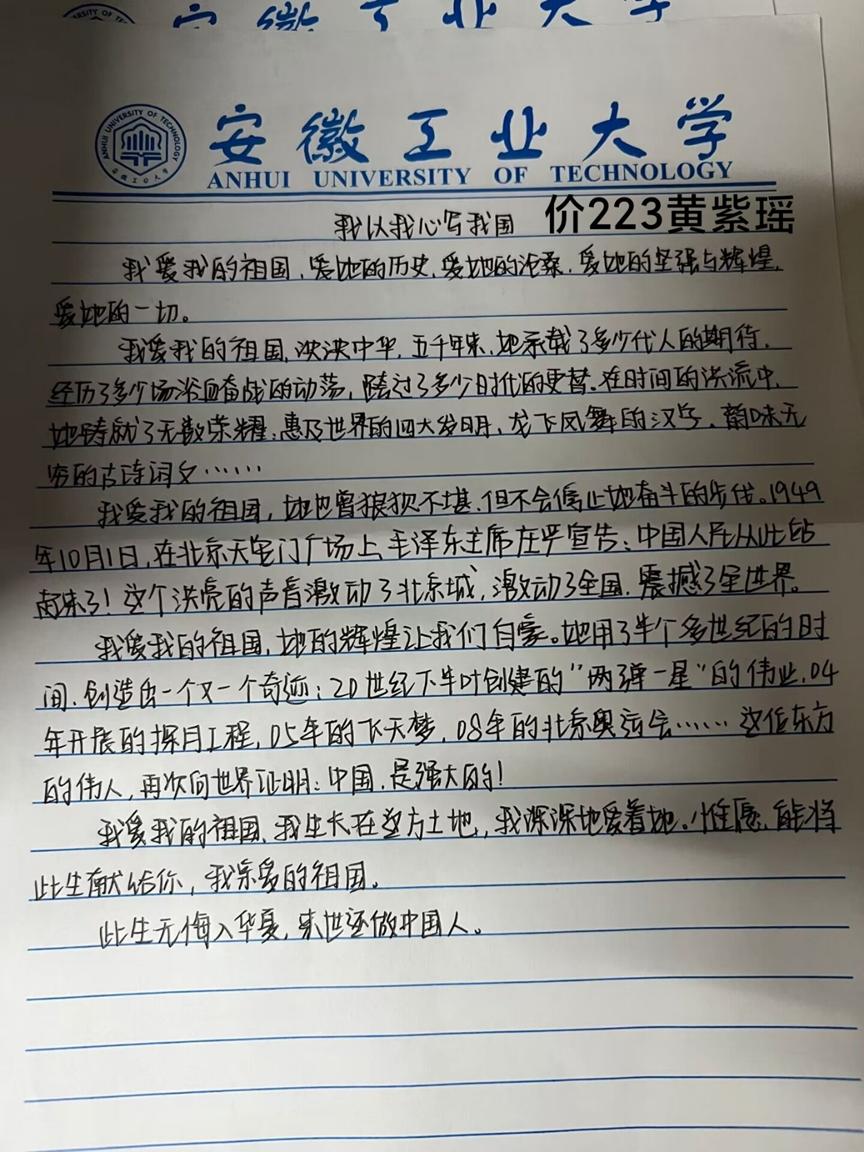 安徽工业大学
ANHUI UNIVERSITY OF TECHNOLOGY
ANHUI UNIVERSITY OF TECHNOLOGY
安徽工业大学
我以我心写我国
价223黄紫瑶
我爱我的祖国，爱她的历史，爱她的沧桑，爱她的坚强与辉煌，
爱她的一切。
我爱我的祖国，泱泱中华，五千年来，她承载了多少代人的期待，
经历了多少场浴血奋战的动荡，跨过了多少时代的更替。在时间的洪流中，
她铸就了无数荣耀：惠及世界的四大发明，龙飞凤舞的汉字，韵味无
穷的古诗词文……
我爱我的祖国，她也曾狼狈不堪，但不会停止她奋斗的步伐。1949
年10月1日，在北京天安门广场上，毛泽东主席庄严宣告：中国人民从此站
起来了！这个洪亮的声音激动了北京城，激动了全国，震撼了全世界。
我爱我的祖国，她的辉煌让我们自豪。她用了半个多世纪的时
间，创造出一个又一个奇迹：20世纪下半叶创建的“两弹一星”的伟业，04
年开展的探月工程，05年的飞天梦，08年的北京奥运会……这位东方
的伟人，再次向世界证明：中国，是强大的！
我爱我的祖国，我生长在这方土地，我深深地爱着她。惟愿，能将
此生献给你，我亲爱的祖国。
此生无悔入华夏，来世还做中国人。